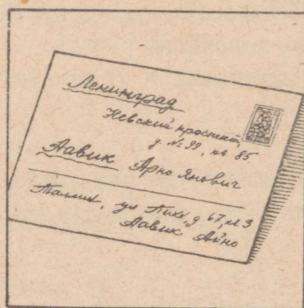 Ленинград
Невский проспект,
д. № 99, кв 85
Аавик Арно Янович
Таллин, ул Пикк, д 67, кв 3
Аавик Айно